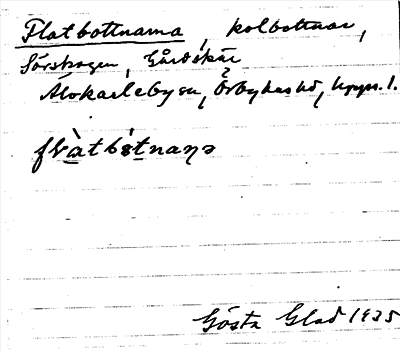 Flatbottnarna, kolbottnar,
Sörskogen, Gårdskär
Älvkarleby sn, Örbyhus hd, Uppl.
flàtbòtnaɳə
Gösta Glad 1935